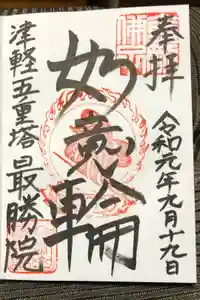 奉拝
令和元年九月十九日
如意輪
津軽五重塔最勝院